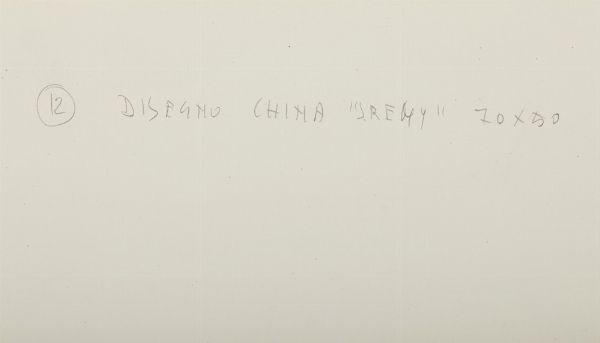 12 DISEGNO CHINA 70X50